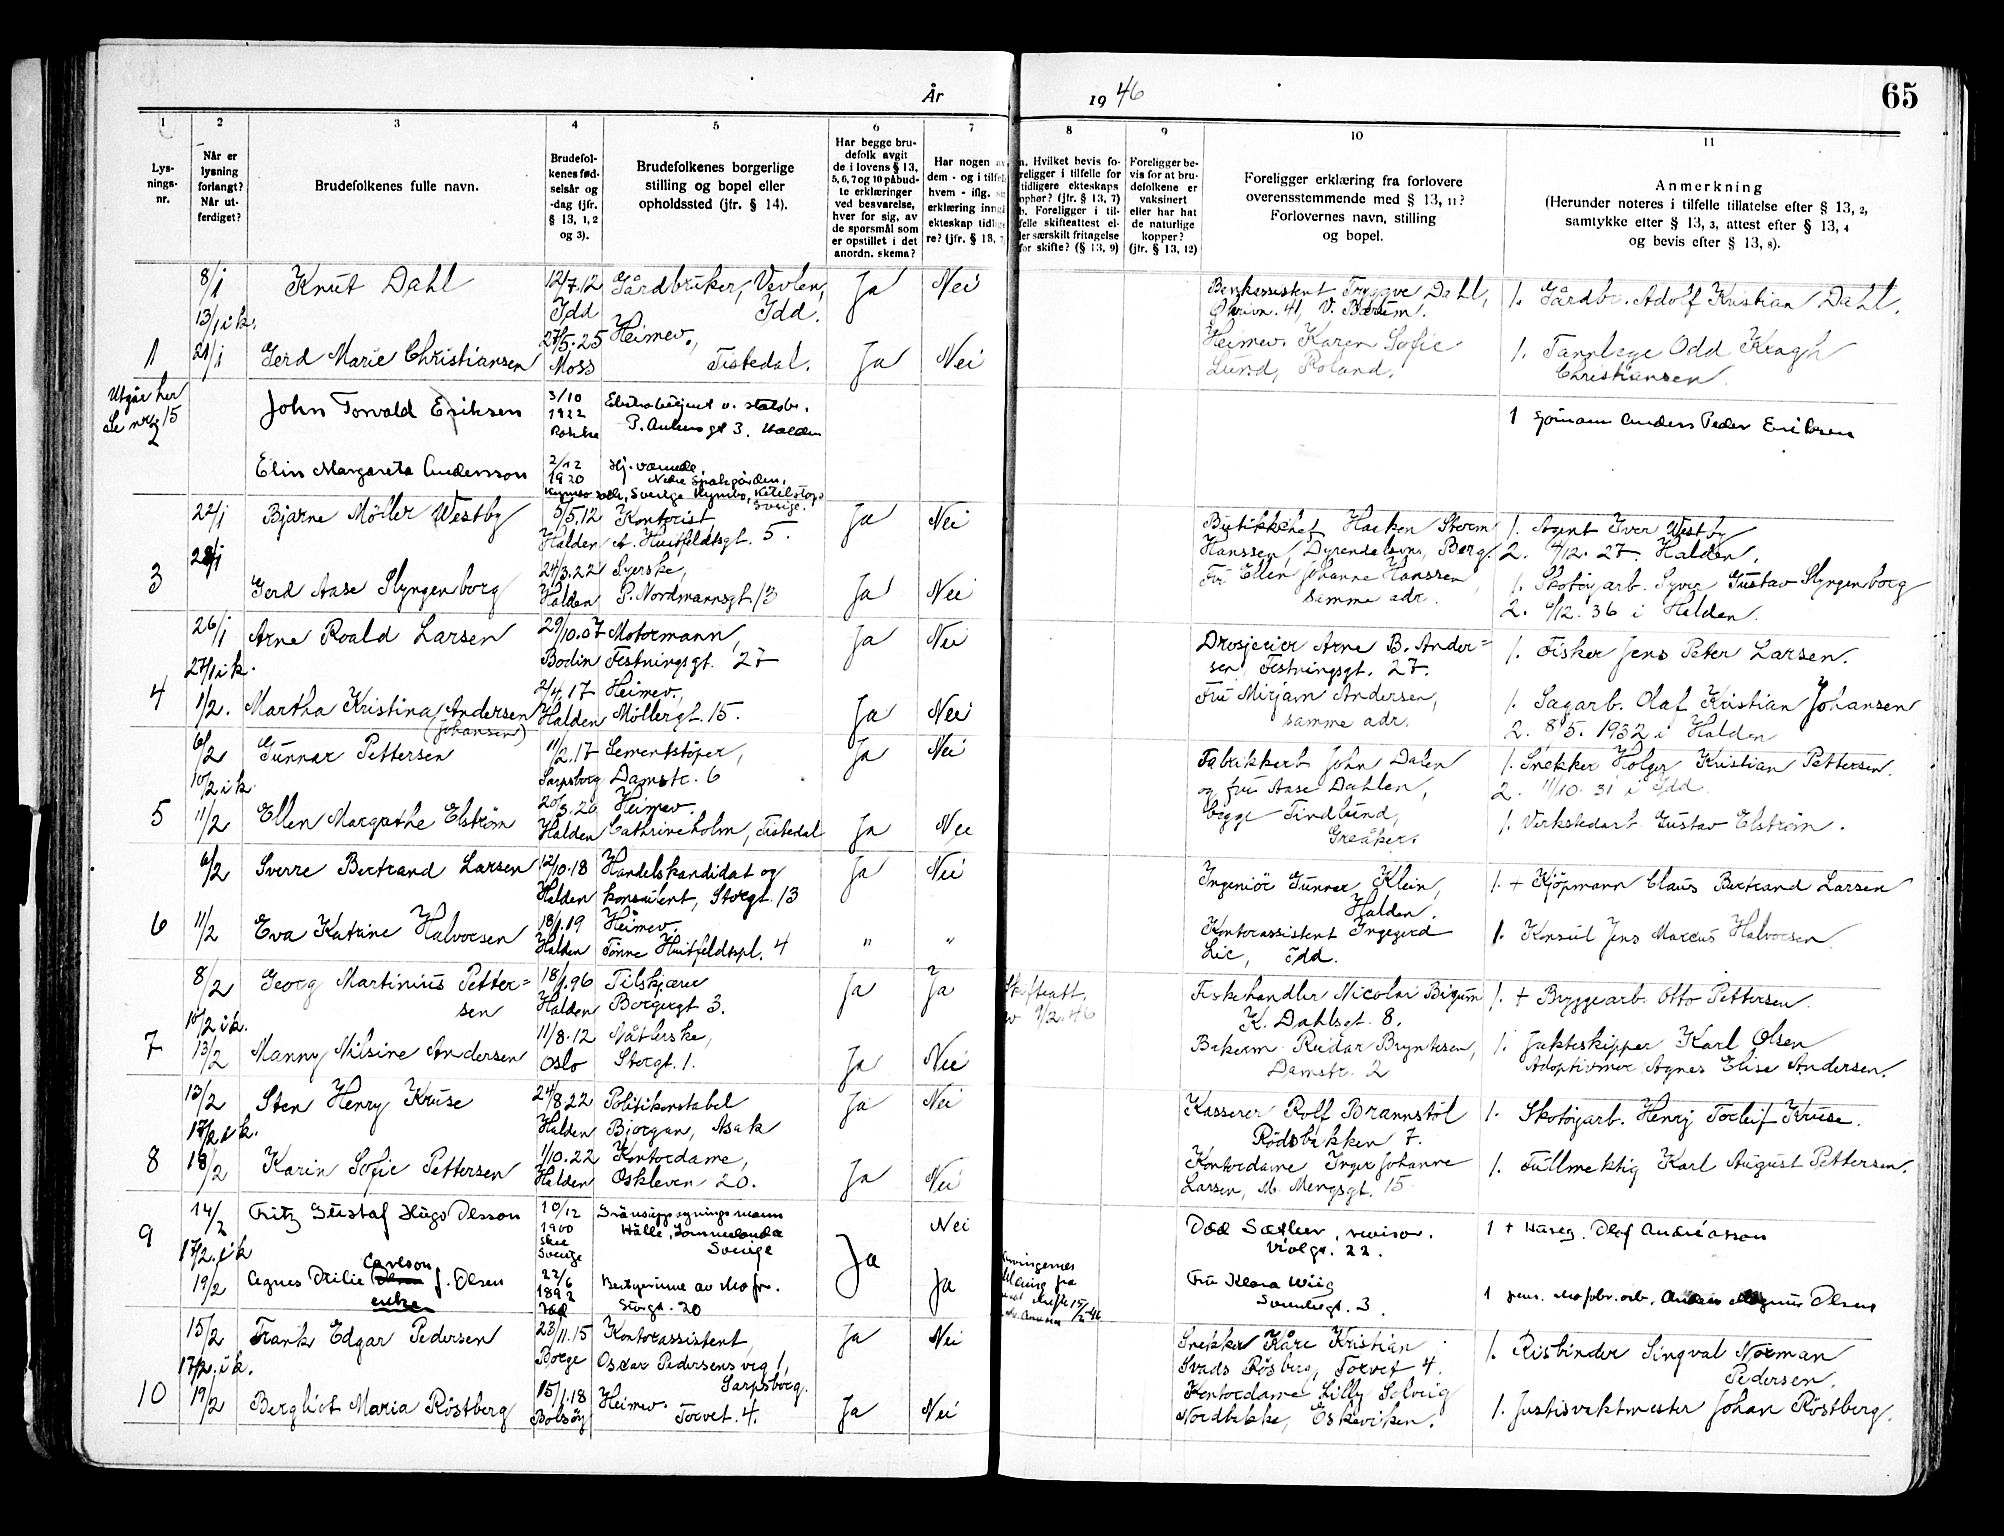 År 1946
65
1
2
3
4
5
6
7
8
9
10
11
Lys-
nings-
nr.
Når er
lysning
forlangt?
Når ut-
ferdiget?
Brudefolkenes fulle navn.
Brudefol-
kenes fød-
selsår og
-dag (jfr.
§ 13, 1, 2
og 3).
Brudefolkenes borgerlige
stilling og bopel eller
opholdssted (jfr. § 14).
Har begge bru-
defolk avgit
de i lovens § 13,
5, 6, 7 og 10 påbud-
te erklæringer
ved besvarelse,
hver for sig, av
de spørsmål som
er opstillet i det
anordn. skema?
Har nogen av
dem - og i tilfelle
hvem - iflg. sin
erklæring inngått
ekteskap tidlige-
re? (jfr. § 13, 7)
a. Hvilket bevis fo-
religger i tilfelle for
tidligere ekteskaps
ophør? (jfr. § 13, 7)
b. Foreligger i til-
felle skifteattest el-
ler særskilt fritagelse
for skifte? (§ 13, 9)
Foreligger be-
vis for at bru-
defolkene er
vaksinert
eller har hat
de naturlige
kopper?
(jfr. § 13, 12)
Foreligger erklæring fra forlovere
overensstemmende med § 13, 11?
Forlovernes navn, stilling
og bopel.
Anmerkning
(Herunder noteres i tilfelle tillatelse efter § 13, 2,
samtykke efter § 13, 3, attest efter § 13, 4
og bevis efter § 13, 8).
8/1 Knut Dahl 12/7.12 Gårdbruker, Vevlen, Ja Nei Bankassistent Trygve Dahl, 1. Gårdbr. Adolf Kristian Dahl.
13/1 i k. Idd Idd. 41, V. Bærum.
1 21/1 Gerd Marie Christiansen 27/5.25 Heimev., Ja Nei Heimev. Karen Sofie 1. Tannlege Odd Kragh
Moss Tistedal. Lund, Roland. Christiansen
Utgår her John Torvald Eriksen 3/10 1 Anders Peder Eriksen
Se nr. 15 1922 P. Ankersgt 3. Halden
2 Rokke
Elin Margareta Andersson 2/12 Hj. værende
1920 Nedre
Sverige
22/1 Bjarne Møller Westby 5/5.12 Kontorist, Ja Nei Butikkchef Haakon Storm 1. Agent Iver Westby
28/1 Halden A. Huitfeldtsgt. 5. Hanssen, Berg. 2. 4/12. 27. Halden.
3 Gerd Aase Slyngenborg 24/3.22 Syerske, Ja Nei Fru Ellen Johanne Hanssen, 1. Skotøyarb. Syver Gustav Slyngenborg
Halden P. Nordmannsgt. 13 samme adr. 2. 6/12. 36 i Halden.
26/1 Arne Roald Larsen 29/10.07 Motormann, Ja Nei Drosjeeier Arne B. Ander- 1. Fisker Jens Peter Larsen.
27/1 i k. Bodin Festningsgt. 27 sen, Festningsgt. 27.
4 1/2. Martha Kristina Andersen 2/4.17 Heimev., Ja Nei Fru Mirjam Andersen, 1. Sagarb. Olaf Kristian Johansen
(Johansen) Halden Møllergt. 15. samme adr. 2. 8/5. 1932 i Halden
6/2 Gunnar Pettersen 11/2.17 Sementstøper, Ja Nei Fabrikkarb John Dalen 1. Snekker Holger Kristian Pettersen.
10/2 i k Sarpsborg Damstr. 6 og fru Aase Dahlen, 2. 11/10. 31 i Idd.
5 11/2 Ellen Margrethe Elstrøm 20/3.20 Heimev. Ja Nei begge Tindlund, 1. Verkstedarb. Gustav Elstrøm.
Halden Cathrineholm, Tistedal Greåker.
6/2 Sverre Bertrand Larsen 12/10.18 Handelskandidat og Ja Nei Ingeniør Gunnar Klein, 1. + Kjøpmann Claus Bertrand Larsen
Halden konsulent, Storgt. 13 Halden.
6 11/2 Eva Katrine Halvorsen 18/1.19 Heimev. " " Kontorassistent Ingegerd 1. Konsul Jens Marcus Halvorsen.
Halden Tønne Huitfeldtspl. 4 Lie, Idd.
8/2 Georg Martinius Petter- 18/1.96 Tilskjærer Ja Ja Skifteatt. Fiskehandler Nicolai Bigum 1. + Bryggearb. Otto Pettersen.
10/2 i k. sen Halden Borgergt 3. 9/2.46 K. Dahlsgt. 8.
7 13/2 Manny Nilsine Andersen 11/8.12 Nåtlerske, Ja Nei Bakerm. Reidar Bryntesen, 1. Jakteskipper Karl Olsen
Oslo Storgt. 1. Damstr. 2 Adoptivmor Agnes Elise Andersen.
13/2 Sten Henry Kruse 24/8.22 Politikonstabel Ja Nei Kasserer Rolf Brannstøl 1. Skotøyarb. Henry Torleif Kruse.
17/2 i k. Halden Bjørgan, Asak Rødsbakken 7.
8 18/2 Karin Sofie Pettersen 1/10.22 Kontordame, Ja Nei Kontordame Inger Johanne 1. Fullmektig Karl August Pettersen.
Halden Oskleven 20. Larsen, M. Mengsgt. 15
9 14/2 Fritz Gustaf Hugo Olsson 10/12 Gränsuppsyningsmann Nei Odd Sæther, revisor. 1 + Olof Andreasson
17/2. i k 1900 Hälle, Violgt. 22.
Skee Sverige
Sverige
Carlson Ja
19/2 Agnes Otilie f. Olsen 22/6 Bestyrerinne av Ja Fru Klara Wiig 1 Anders Magnus Olsen
enke 1892 Storgt. 20 3.
Idd
15/2 Frank Edgar Pedersen 23/11.15 Kontorassistent, Ja Nei Snekker Kåre Kristian 1. Risbinder Singval Norman
17/2. i k. Borge Oscar Pedersens veg 1, Røsberg, Torvet 4. Pedersen.
Sarpsborg.
10 19/2 Bergliot Maria Röstberg 15/1.18 Heimev. Ja Nei Kontordame Lilly Solveig 1. Justisvaktmester Johan Röstberg.
Bolsøy Torvet. 4. Nordbakke, Eskeviken.